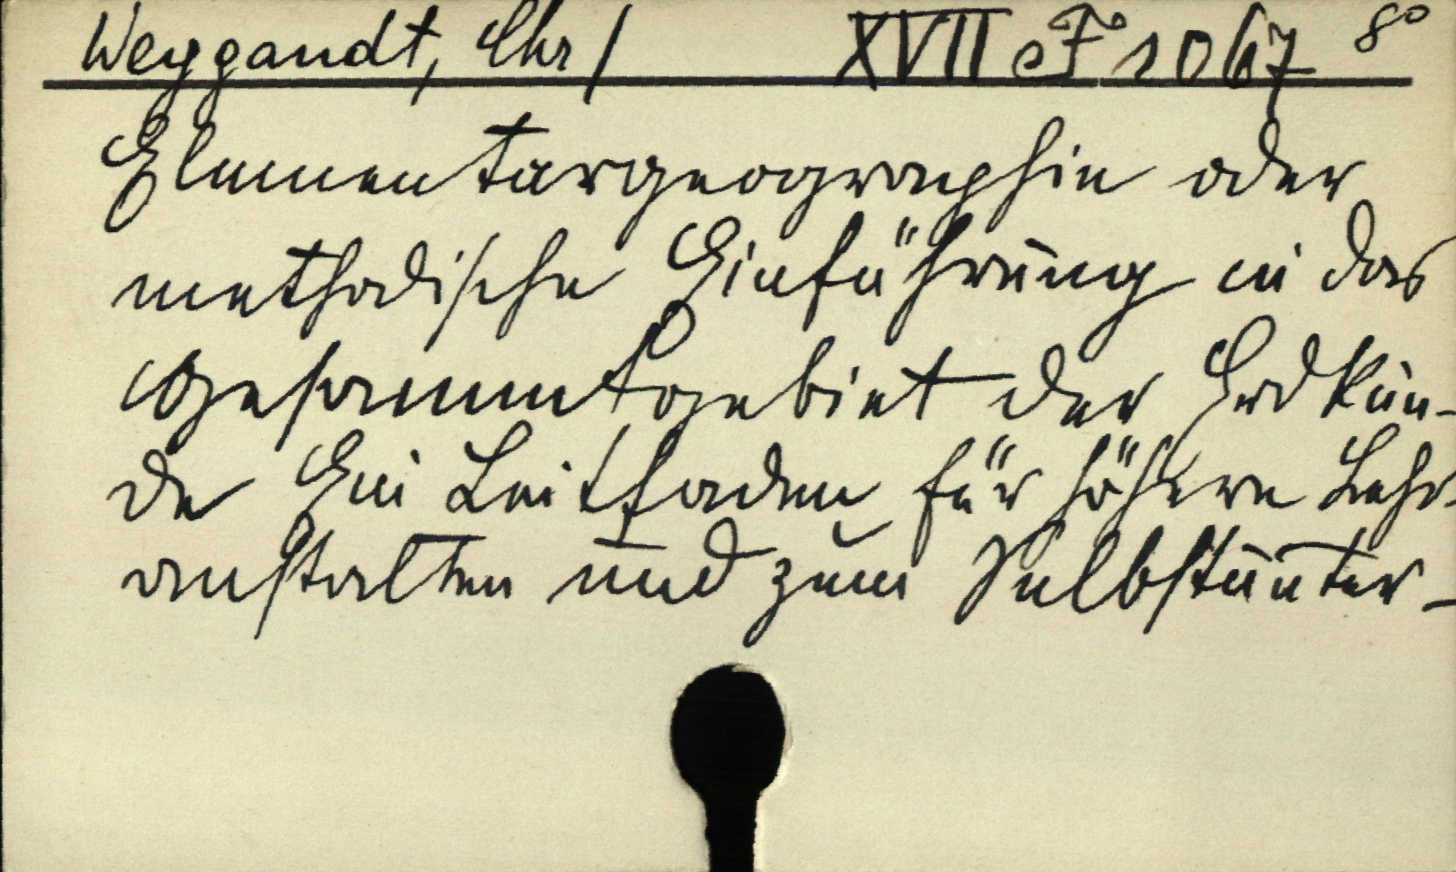 Weygandt, Chr / XVII eF° 1067 8°
Elementargeographie oder
methodische Einführung in das
Gesammtgebiet der Erdkun-
de Ein Leitfaden für höhere Lehr
anstalten und zum Selbstunter-